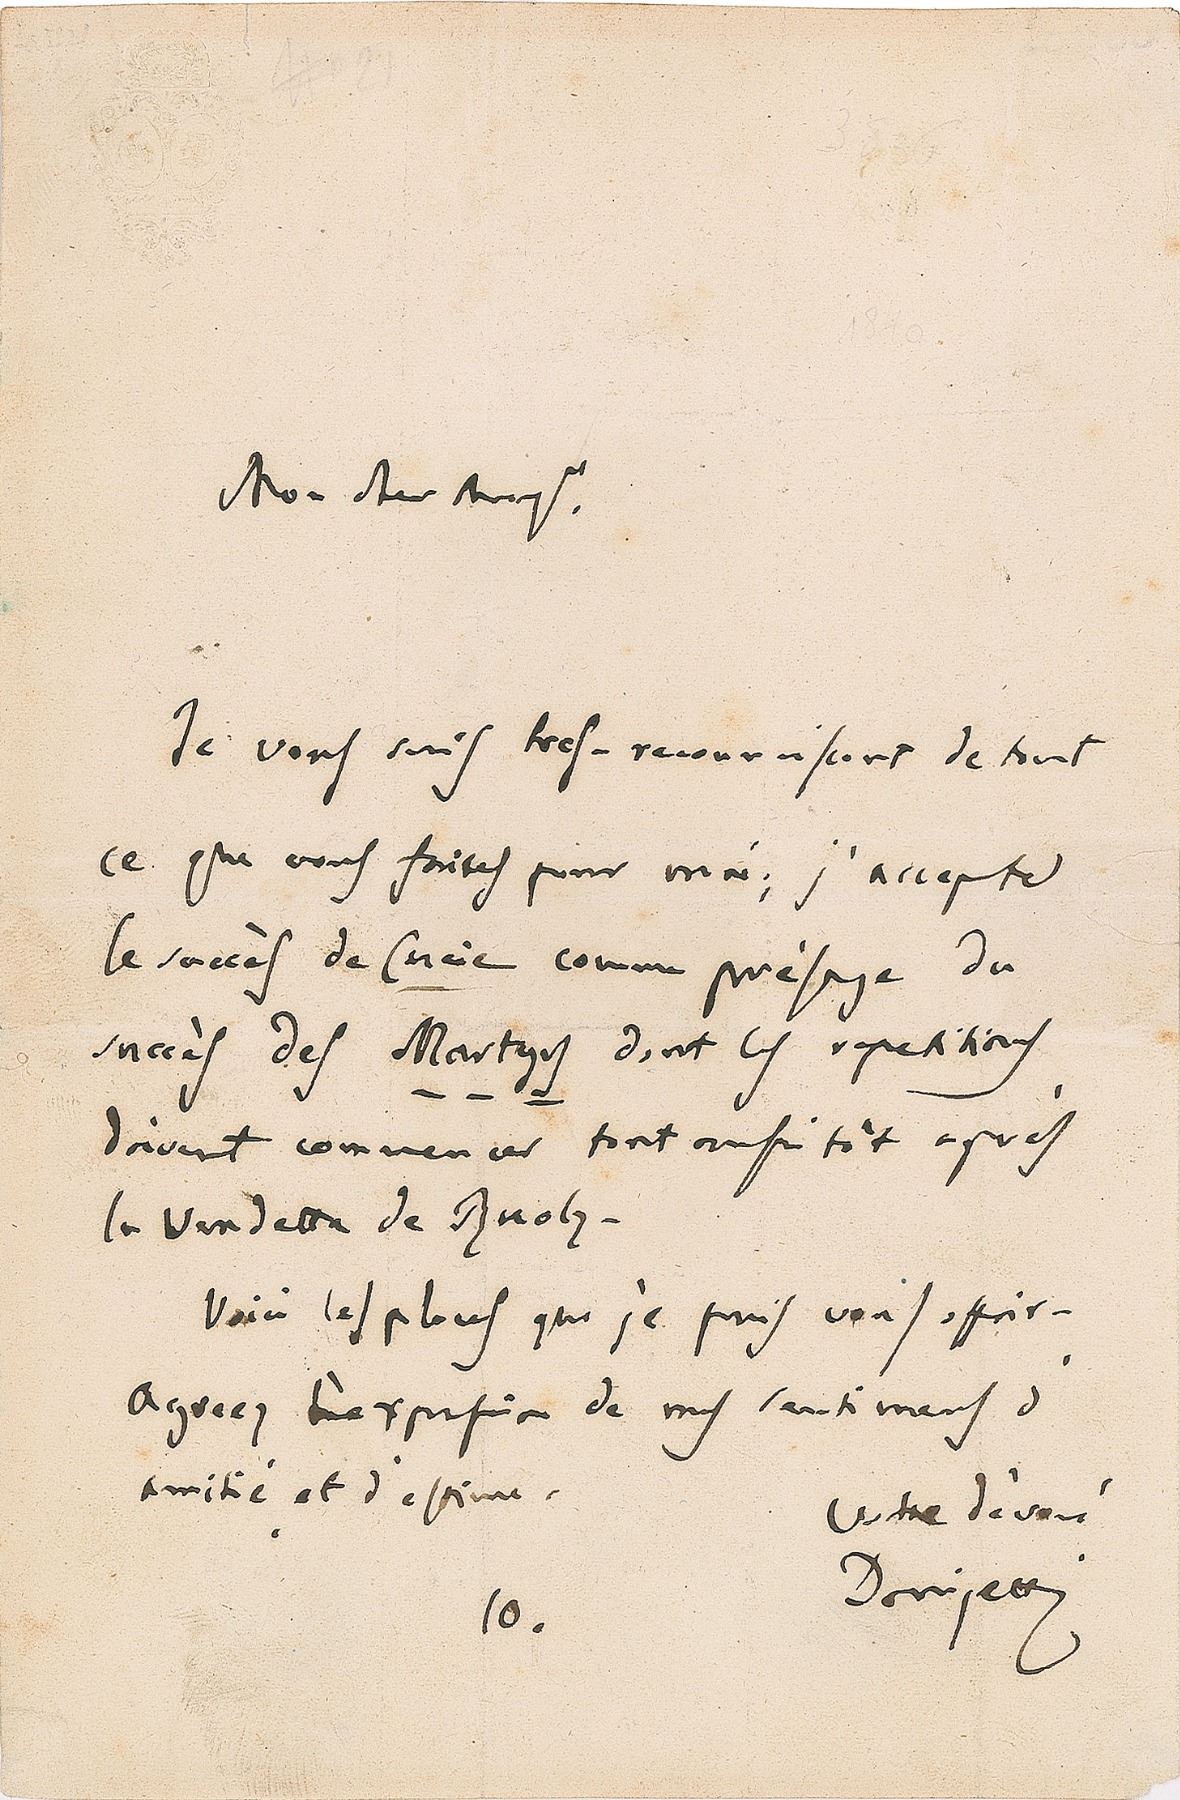 Mon cher
Je vous suis tres-reconnaissant de tout
ce que vous faites pour moi; j'accepte
le succès de Lucie comme présage du
succès des Martyrs dont les repetitions
doivent commencer tout aussitôt après
la Vendetta de Ruolz-
Voici les places que je puis vous offrir-
Agreez l'expression de mes sentimens d'
amitié et d'estime.
Votre dévoué
Donizetti
10.
1840